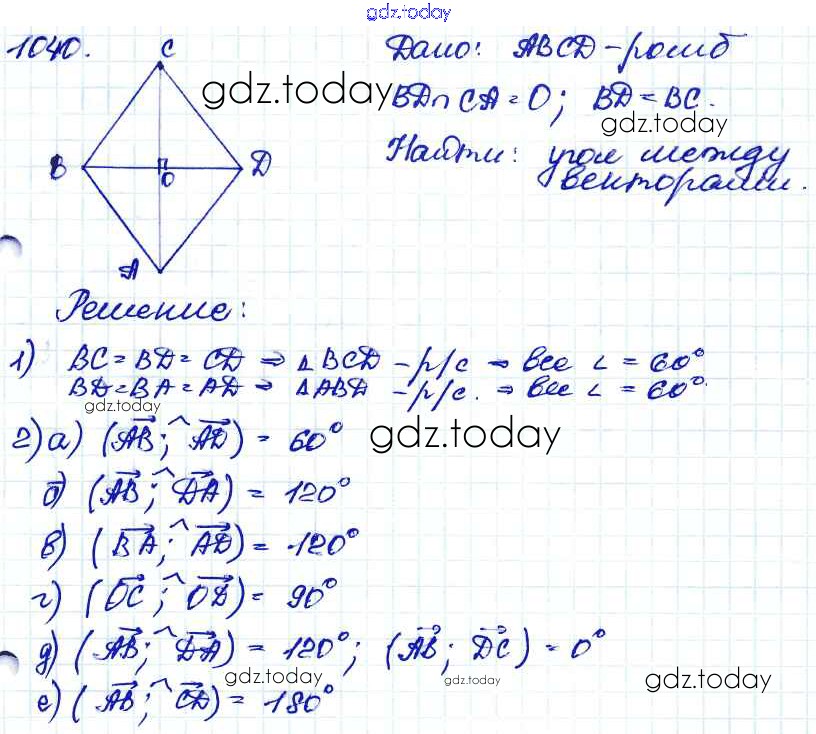 gdz.today
1040.
C
B
O
D
A
gdz.today
Дано: ABCD - ромб
BD ∩ CA = O; BD = BC.
gdz.today
Найти: угол между
векторами.
Решение:
1) BC = BD = CD ⇒ △BCD - р/с ⇒ все ∠ = 60°
BD = BA = AD ⇒ △ABD - р/с. ⇒ все ∠ = 60°.
gdz.today
2) а) (AB⃗; ^AD⃗) = 60°
gdz.today
б) (AB⃗; ^DA⃗) = 120°
в) (BA⃗; ^AD⃗) = 120°
г) (OC⃗; ^OD⃗) = 90°
д) (AB⃗; ^DA⃗) = 120°; (AB⃗; DC⃗) = 0°
gdz.today gdz.today gdz.today
е) (AB⃗; ^CD⃗) = 180°